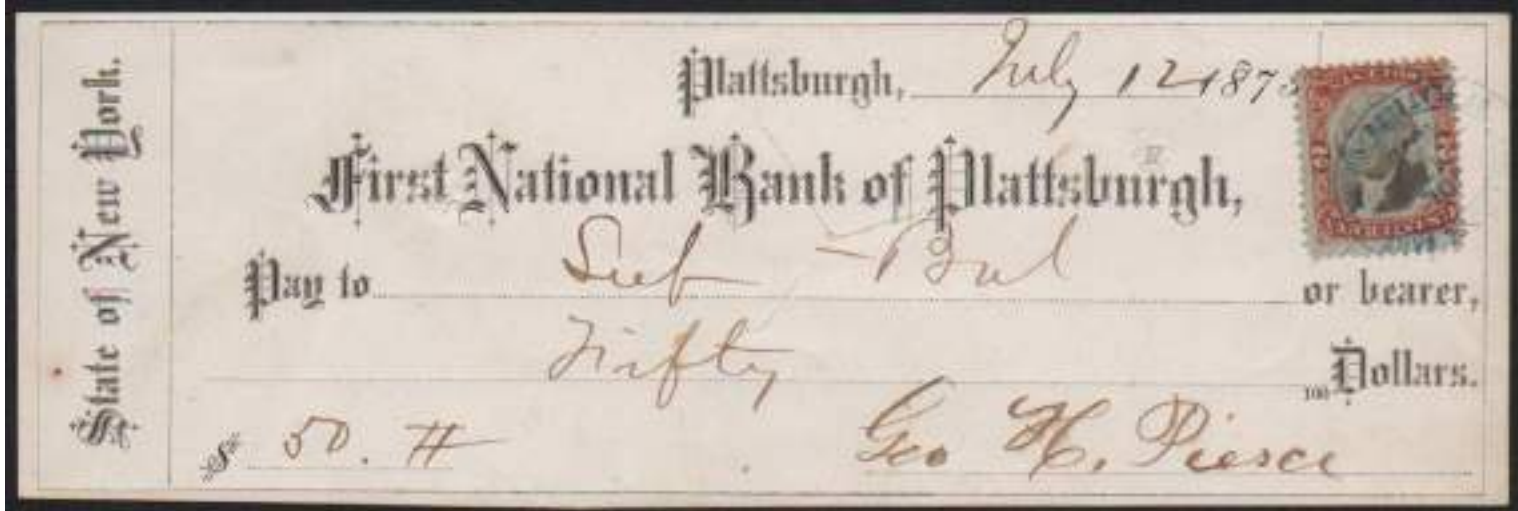 State of New York.
Plattsburgh, July 12 187
First National Bank of Plattsburgh,
Pay to or bearer,
Fifty 100 Dollars.
$ 50.
Geo H. Pierce